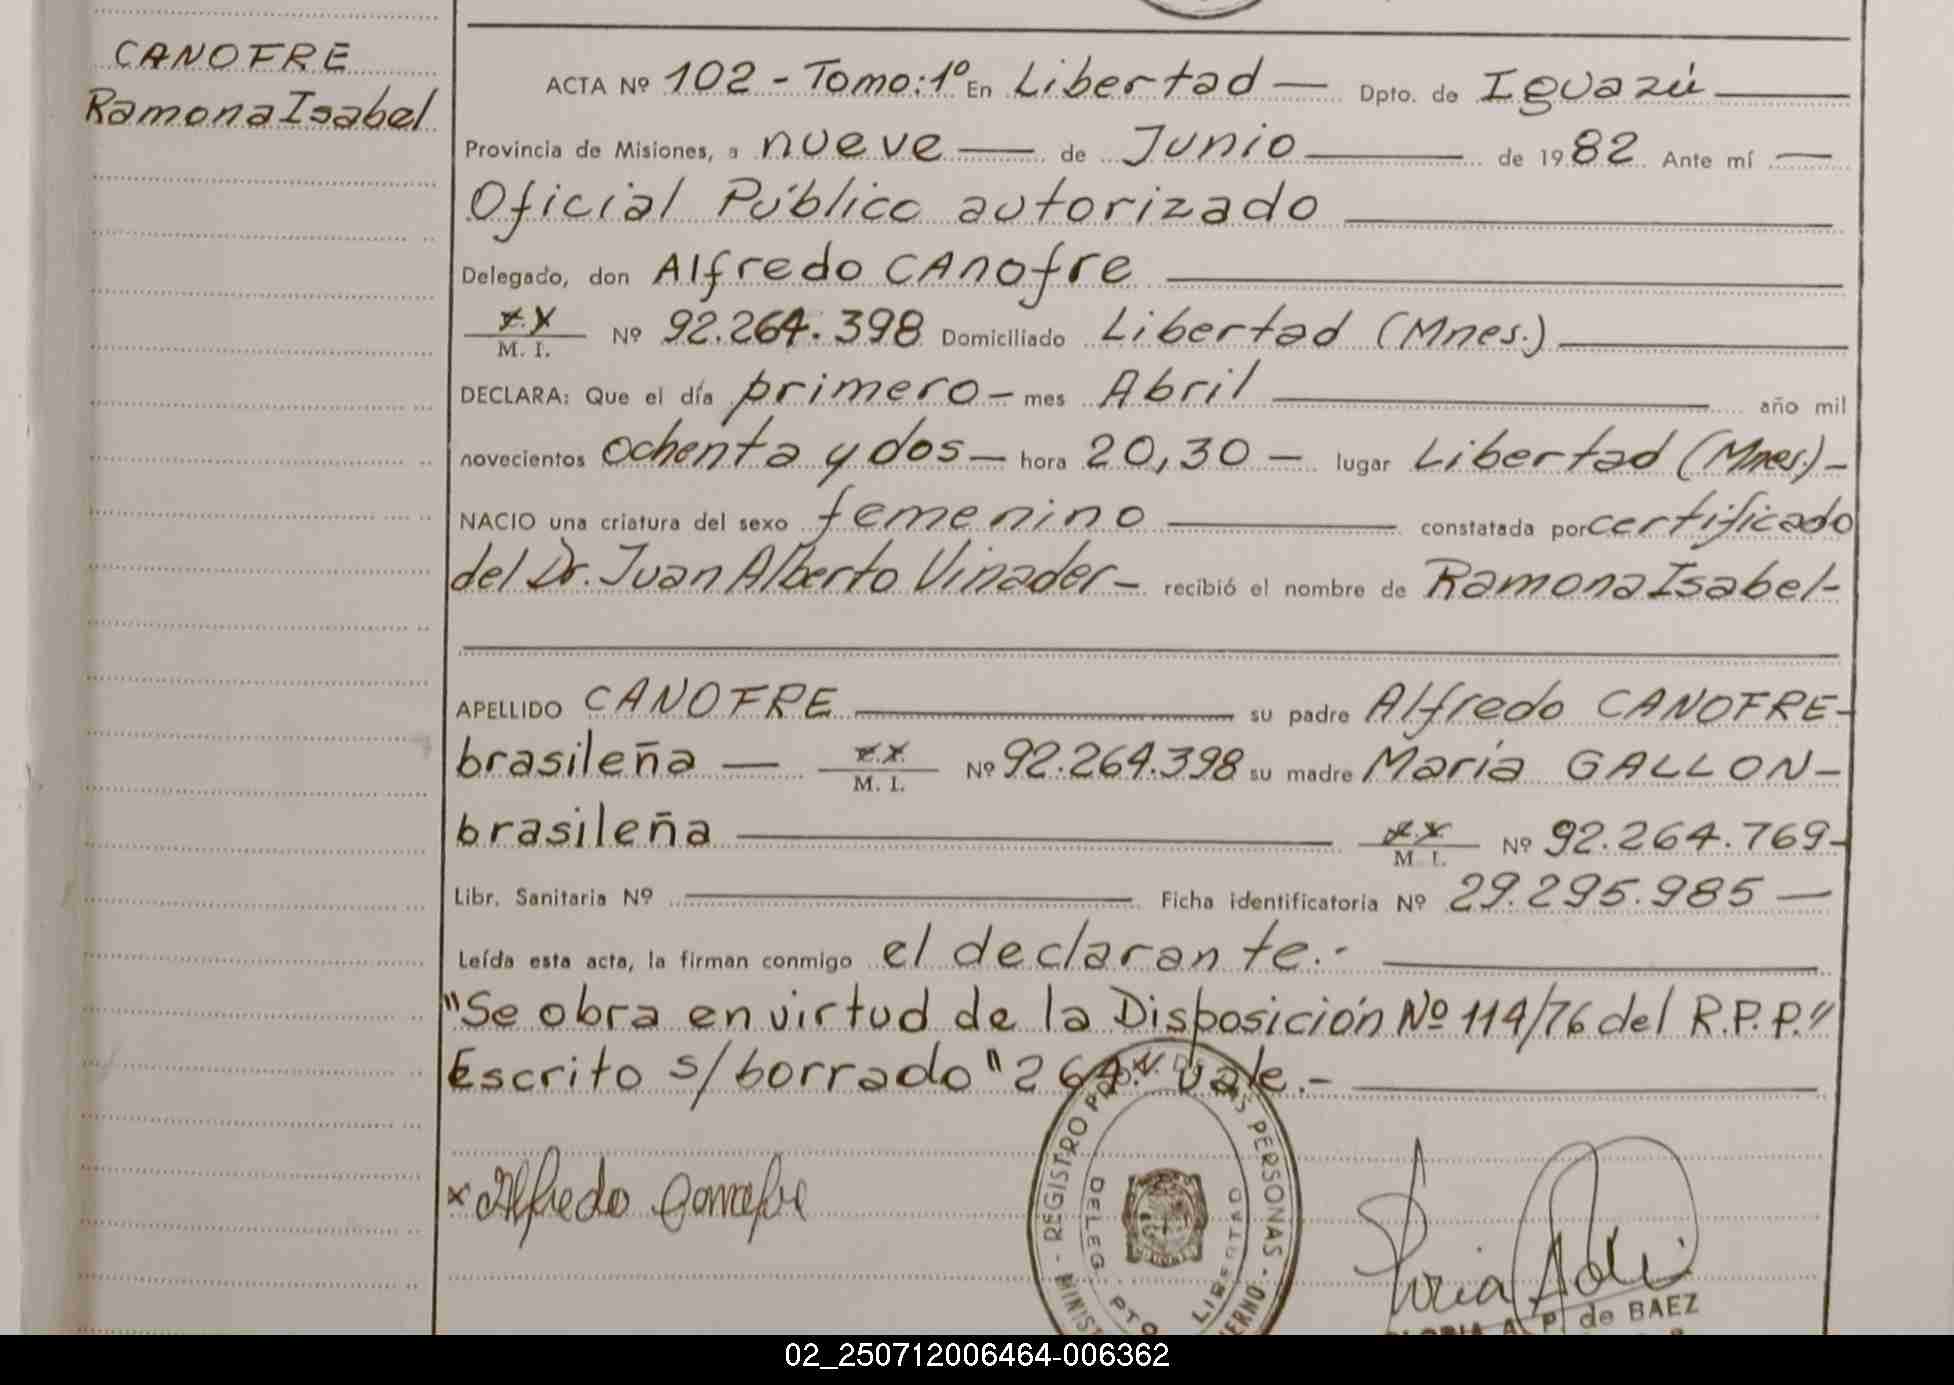 CANOFRE
Ramona Isabel
ACTA Nº 102 - Tomo: 1º En Libertad — Dpto. de Iguazú —
Provincia de Misiones, a nueve — de Junio — de 1982 Ante mí —
Oficial Público autorizado —
Delegado, don Alfredo CAnofre —
x.x M. I. Nº 92.264.398 Domiciliado Libertad (Mnes.) —
DECLARA: Que el día primero — mes Abril — año mil
novecientos ochenta y dos — hora 20,30 — lugar Libertad (Mnes.) -
NACIO una criatura del sexo femenino — constatada por certificado
del Dr. Juan Alberto Vinader - recibió el nombre de Ramona Isabel -
APELLIDO CANOFRE — su padre Alfredo CANOFRE -
brasileña — x.x. M. I. Nº 92.264.398 su madre María GALLON -
brasileña — x.x. M. I. Nº 92.264.769 -
Libr. Sanitaria Nº — Ficha identificatoria Nº 29.295.985 —
Leída esta acta, la firman conmigo el declarante.- —
"Se obra en virtud de la Disposición Nº 114/76 del R.P.P."
Escrito s/borrado "264" vale.- —
x Alfredo Canofre
REGISTRO PROV. DE LAS PERSONAS
DELEG. PTO LIBERTAD
GLORIA A. P. de BAEZ
02_250712006464-006362